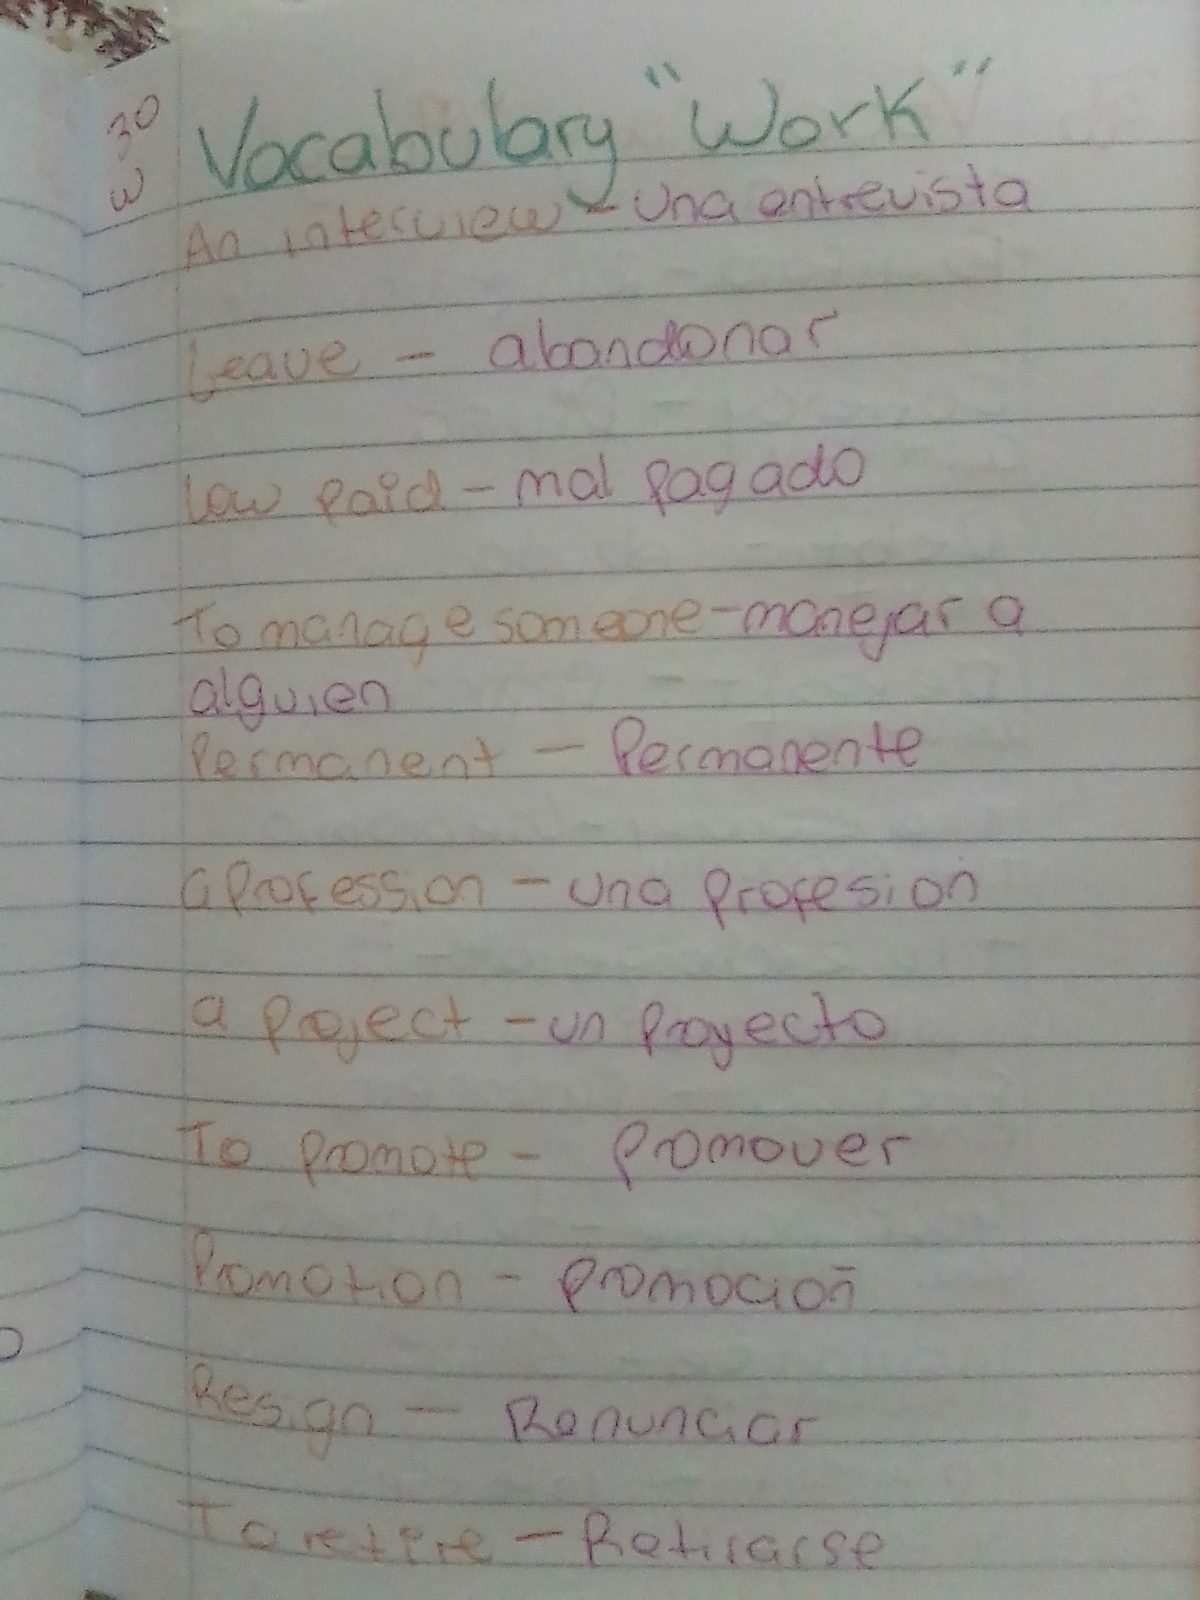 30
w
Vocabulary "Work"
An interview - Una entrevista
Leave - abandonar
Low paid - mal pagado
To manage someone - manejar a
alguien
Permanent - Permanente
a Profession - una profesión
a project - un proyecto
To promote - promover
Promotion - promoción
Resign - Renunciar
To retire - Retirarse